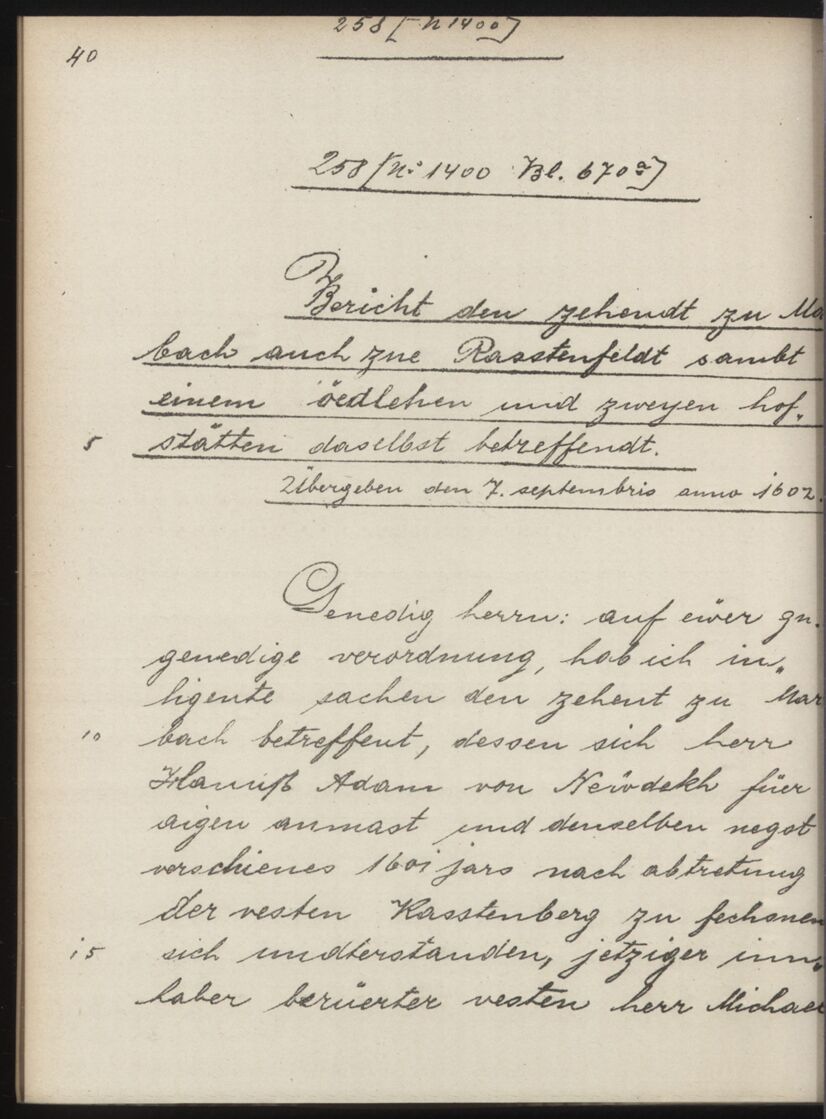 258 [N 1400]
40
258 [N: 1400 Bl. 670a]
Bericht den zehendt zu Ma
bach auch zue Rasstenfeldt sambt
einem öedlehen und zweyen hof-
5 stätten daselbst betreffendt.
Übergeben den 7. septembris anno 1602.
Genedig herrn: auf eüer gn.
genedige verordnung, hab ich in„
ligente sachen den zehent zu Mar
10 bach betreffent, dessen sich herr
Hannß Adam von Neüdekh füer
aigen anmast und denselben negst
verschienes 160i jars nach abtretung
der vesten Rasstenberg zu fechsnen
i5 sich undterstanden, jetziger inn„
haber berüerter vesten herr Michael